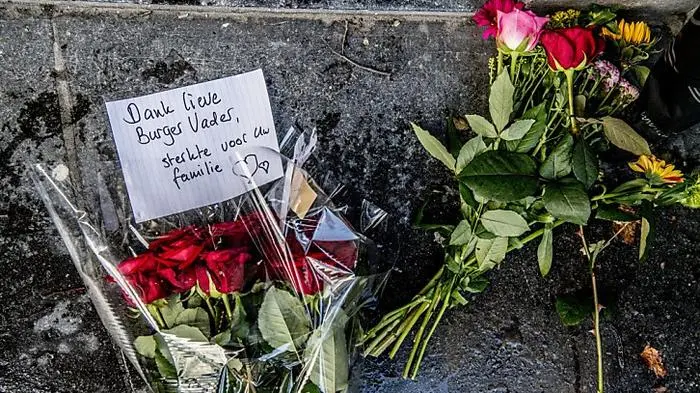 Dank lieve
Burger Vader,
sterkte voor uw
familie